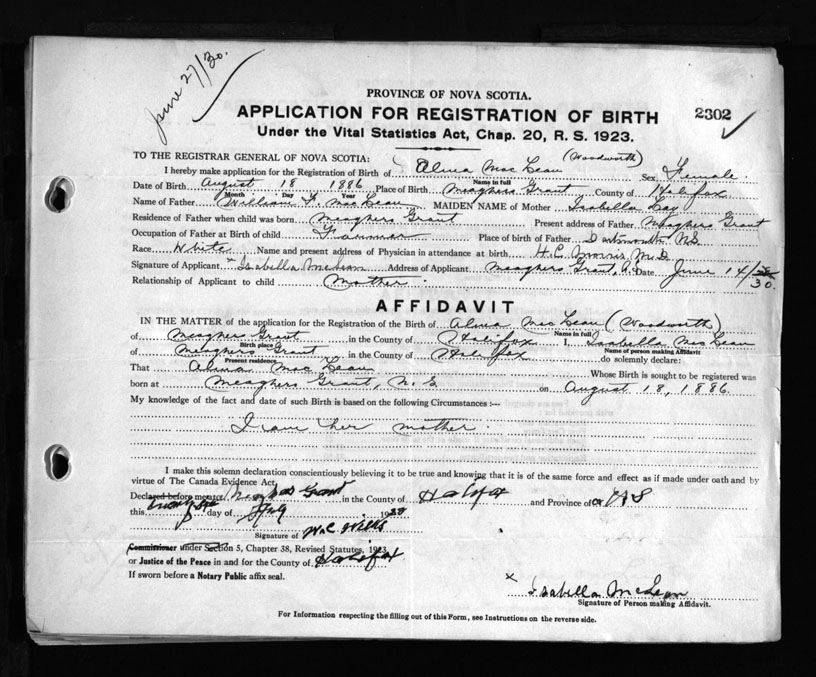 June 27/30.
PROVINCE OF NOVA SCOTIA.
APPLICATION FOR REGISTRATION OF BIRTH
2302
Under the Vital Statistics Act, Chap. 20, R. S. 1923.
TO THE REGISTRAR GENERAL OF NOVA SCOTIA:
(Woodworth)
I hereby make application for the Registration of Birth of Alma Mac Lean Sex Female
Name in full
Date of Birth August 18 1886 Place of Birth Meaghers Grant County of Halifax
Month Day Year
Name of Father William F. MacLean MAIDEN NAME of Mother Isabella Day
Residence of Father when child was born Meaghers Grant Present address of Father Meaghers Grant
Occupation of Father at Birth of child Place of birth of Father Dartmouth N.S.
Race White Name and present address of Physician in attendance at birth H.C. Morris M.D.
Signature of Applicant x Isabella McLean Address of Applicant Meaghers Grant, Date June 14/30.
Relationship of Applicant to child Mother
AFFIDAVIT
IN THE MATTER of the application for the Registration of the Birth of Alma Mac Lean (Woodworth)
Name in full
of Meaghers Grant in the County of Halifax I, Isabella Mac Lean
Birth place Name of person making Affidavit
of Meaghers Grant in the County of Halifax do solemnly declare:
Present residence
That Alma Mac Lean Whose Birth is sought to be registered was
born at Meaghers Grant, N.S. on August 18, 1886.
My knowledge of the fact and date of such Birth is based on the following Circumstances :—
I am her mother.
I make this solemn declaration conscientiously believing it to be true and knowing that it is of the same force and effect as if made under oath and by
virtue of The Canada Evidence Act.
Declared before me at Meaghers Grant in the County of Halifax and Province of N S
this day of 19
Signature of W.C. Wills
Commissioner under Section 5, Chapter 38, Revised Statutes, 1923
or Justice of the Peace in and for the County of Halifax
If sworn before a Notary Public affix seal.
x Isabella McLean
Signature of Person making Affidavit.
For Information respecting the filling out of this Form, see Instructions on the reverse side.